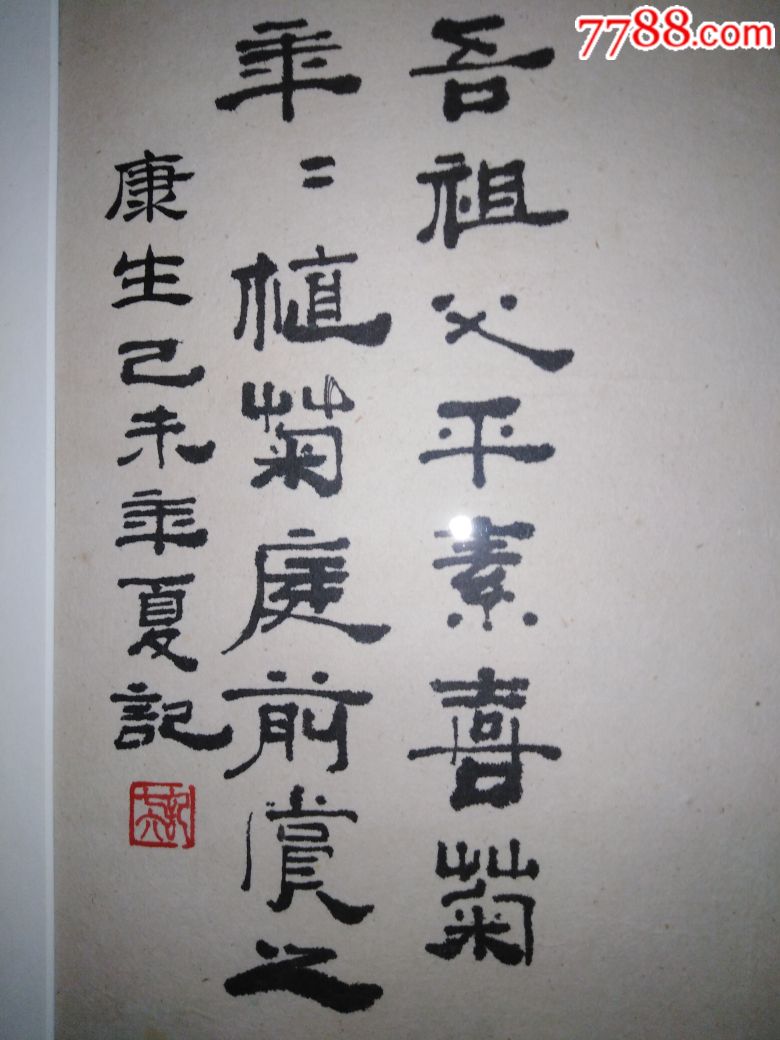 吾祖父平素喜菊
年〻植菊庭前賞之
康生己未年夏記
7788.com